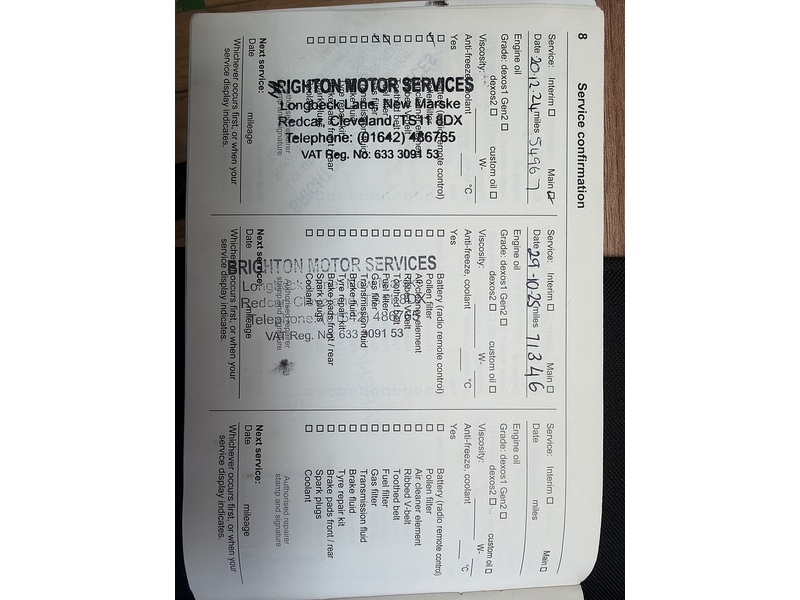 8 Service confirmation
Service: Interim ☐ Main ☑
Date 20.12.24 miles 54967
Engine oil
Grade: dexos1 Gen2 ☐
dexos2 ☐ custom oil ☐
Viscosity: W-
Anti-freeze, coolant °C
Yes
Battery (radio remote control)
BRIGHTON MOTOR SERVICES
Longbeck Lane, New Marske
Redcar, Cleveland, TS11 8DX
Telephone: (01642) 486765
VAT Reg. No: 633 3091 53
Next service:
Date mileage
Whichever occurs first, or when your
service display indicates.
Service: Interim ☐ Main ☐
Date 29-10-25 miles 71346
Engine oil
Grade: dexos1 Gen2 ☐
dexos2 ☐ custom oil ☐
Viscosity: W-
Anti-freeze, coolant °C
Yes
☐ Battery (radio remote control)
☐ Pollen filter
☐ Air cleaner element
☐ Ribbed V-belt
☐ Toothed belt
☐ Fuel filter
☐ Gas filter
☐ Transmission fluid
☐ Brake fluid
☐ Tyre repair kit
☐ Brake pads front / rear
☐ Spark plugs
☐ Coolant
BRIGHTON MOTOR SERVICES
VAT Reg. No: 633 3091 53
Authorised repairer
stamp and signature
Next service:
Date mileage
Whichever occurs first, or when your
service display indicates.
Service: Interim ☐ Main ☐
Date miles
Engine oil
Grade: dexos1 Gen2 ☐
dexos2 ☐ custom oil ☐
Viscosity: W-
Anti-freeze, coolant °C
Yes
☐ Battery (radio remote control)
☐ Pollen filter
☐ Air cleaner element
☐ Ribbed V-belt
☐ Toothed belt
☐ Fuel filter
☐ Gas filter
☐ Transmission fluid
☐ Brake fluid
☐ Tyre repair kit
☐ Brake pads front / rear
☐ Spark plugs
☐ Coolant
Authorised repairer
stamp and signature
Next service:
Date mileage
Whichever occurs first, or when your
service display indicates.